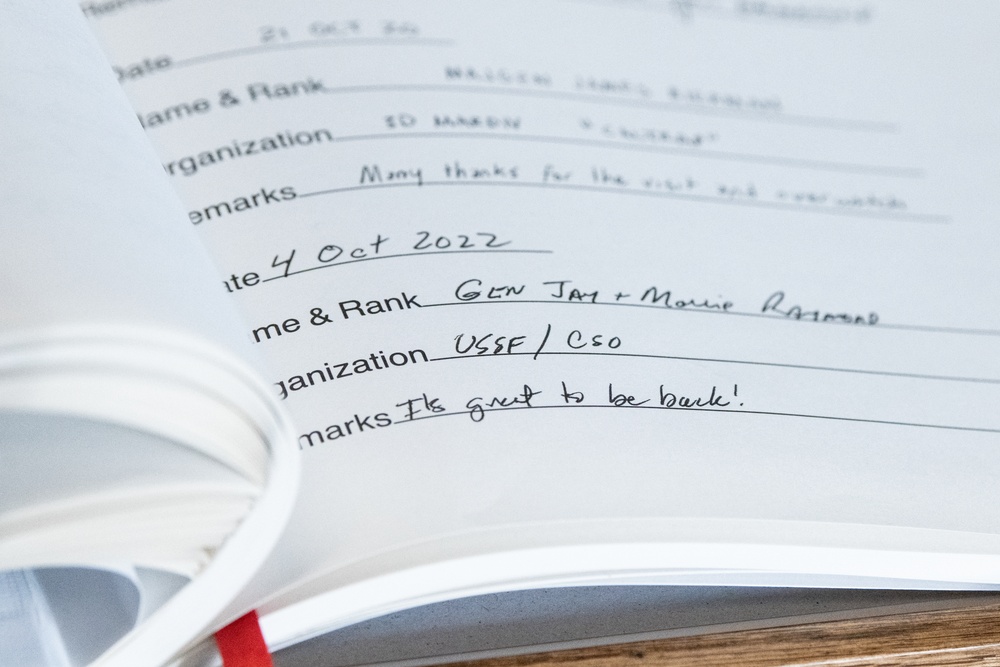 21 OCT 20
Date
ame & Rank
rganization
emarks Many thanks for the visit and overwatch
ate 4 Oct 2022
me & Rank GEN JAY + Mollie RAYMOND
ganization USSF / CSO
marks It's great to be back!